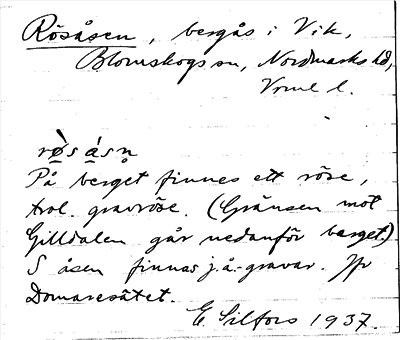 Rösåsen, bergås i Vik,
Blomskogs sn, Nordmarks hd,
Vrml l.
røs åsn
På berget finnes ett röse,
trol. gravröse. (Gränsen mot
Gilldalen går nedanför berget)
S åsen finnas j.å.-gravar. Jfr
Domaresätet.
E. Silfors 1937.